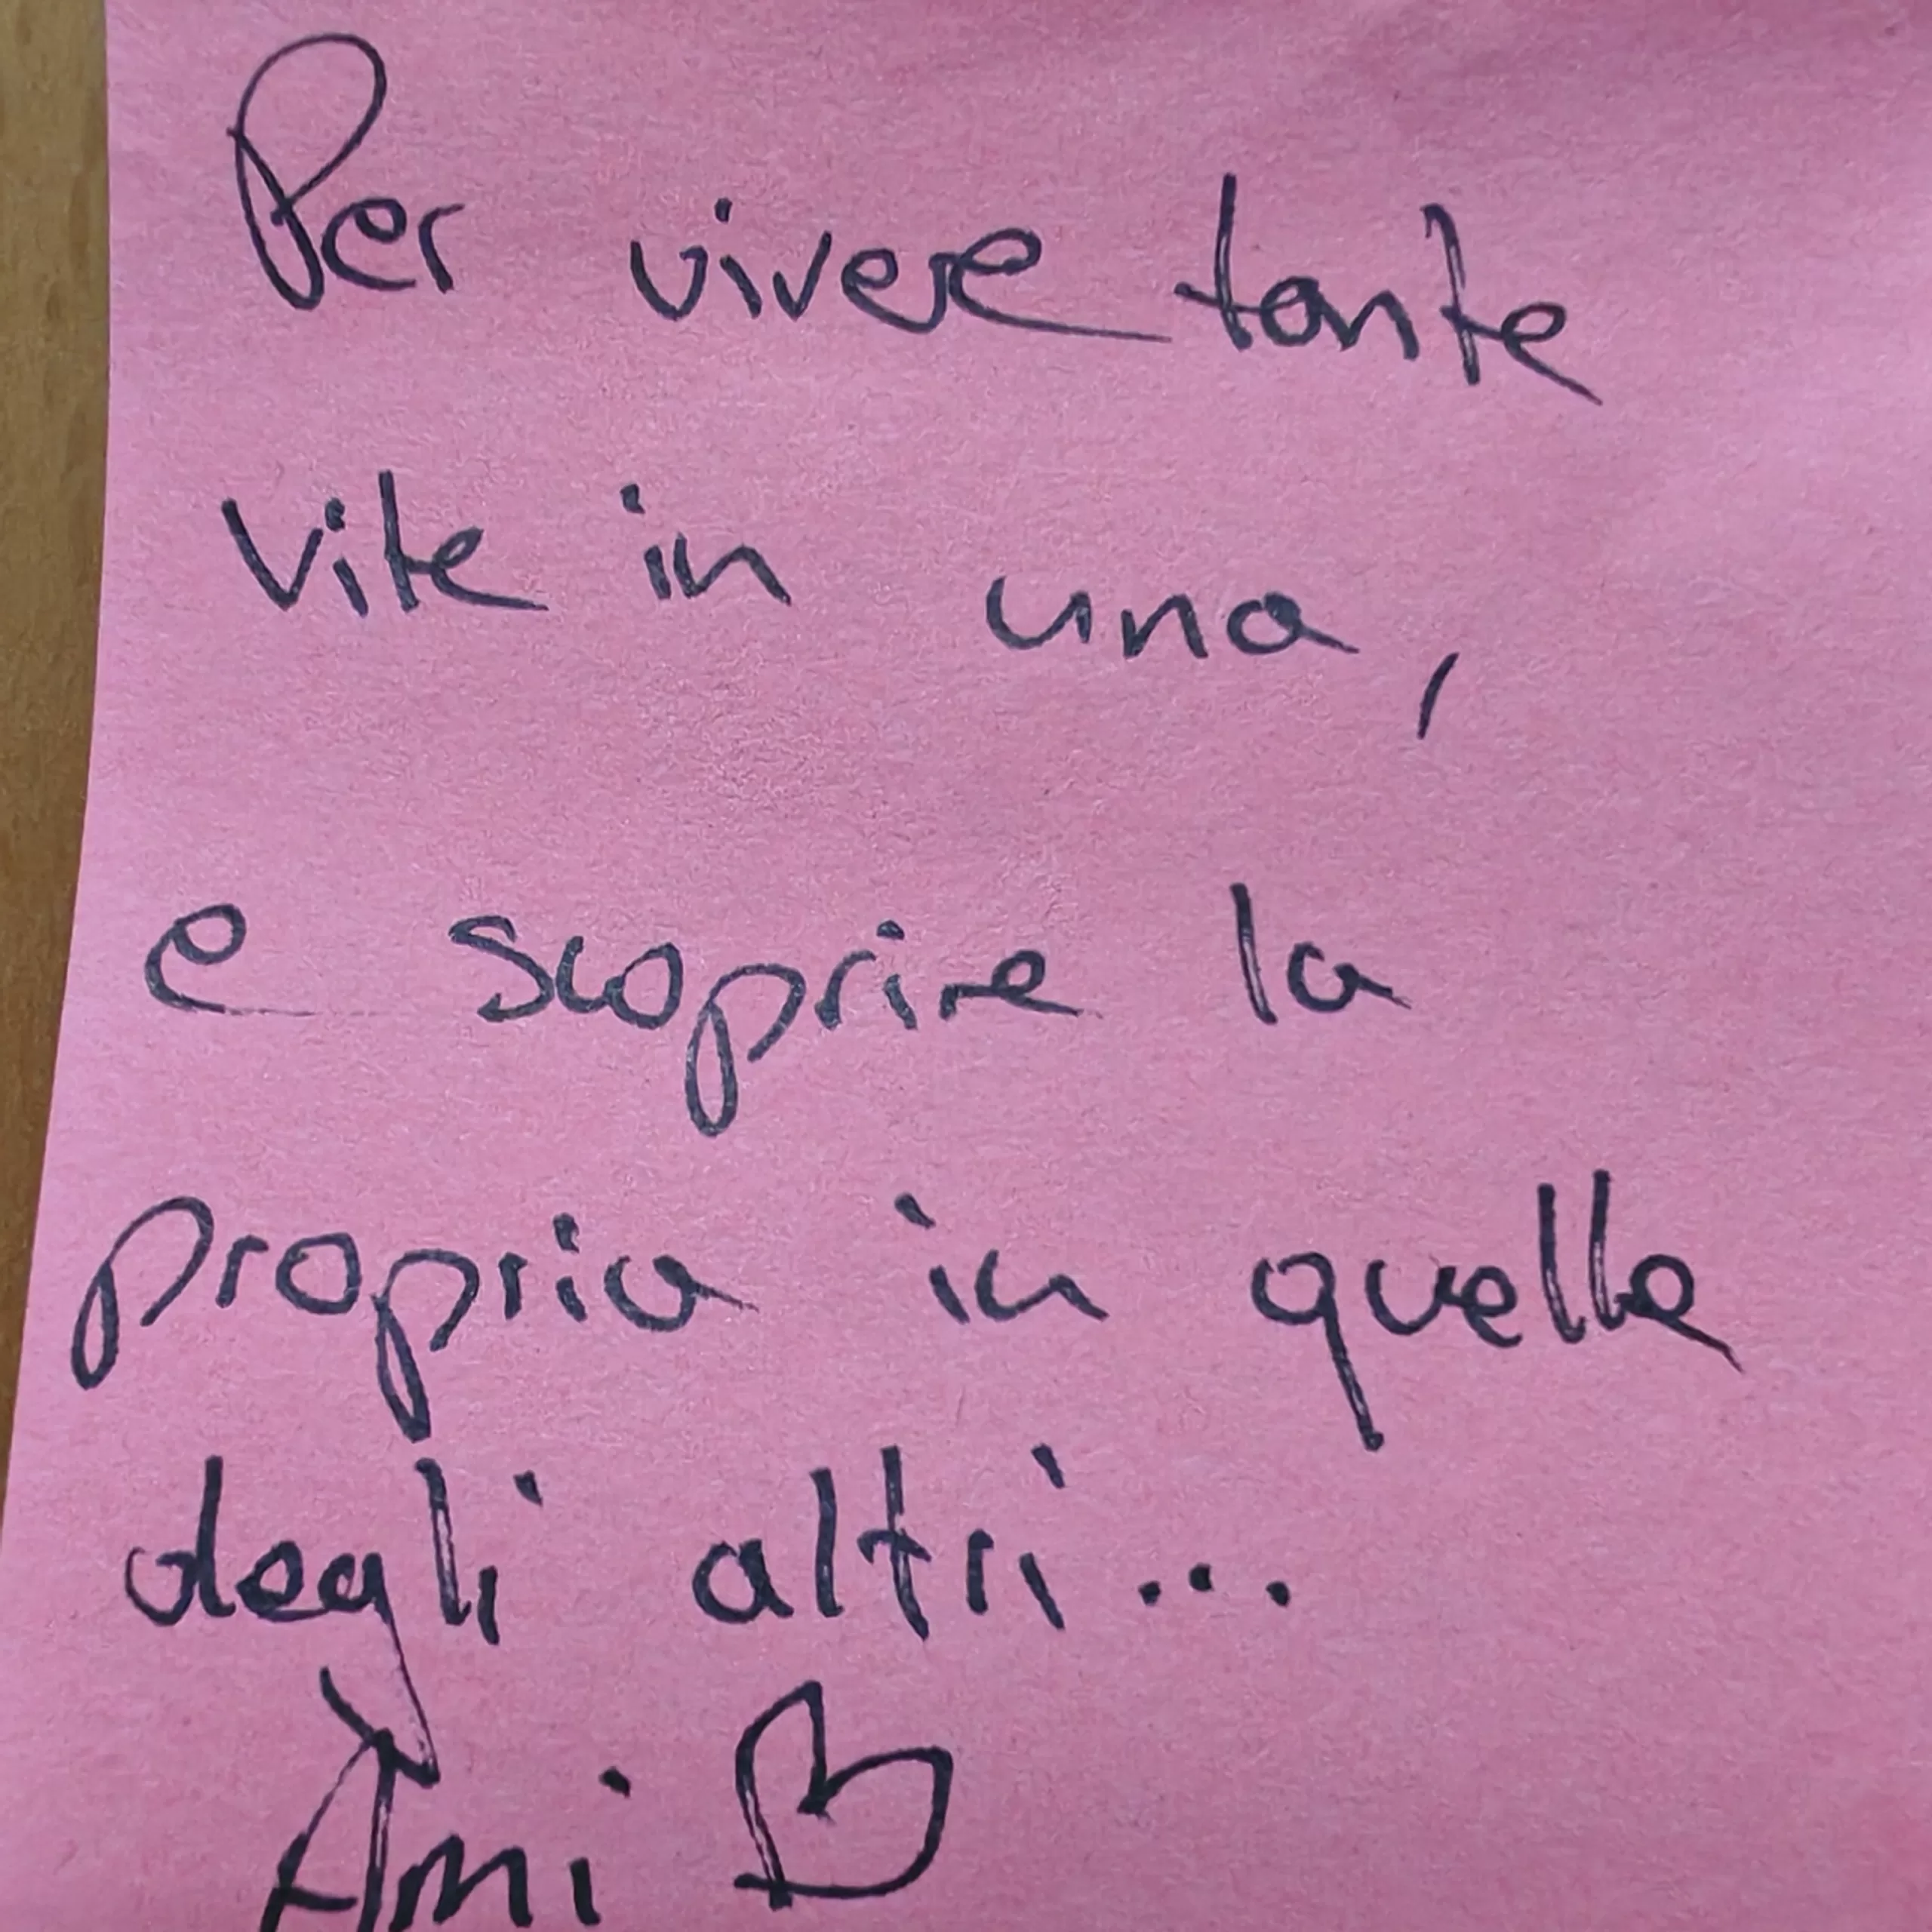 Per vivere tante
vite in una,
e scoprire la
propria in quella
degli altri...
Ami